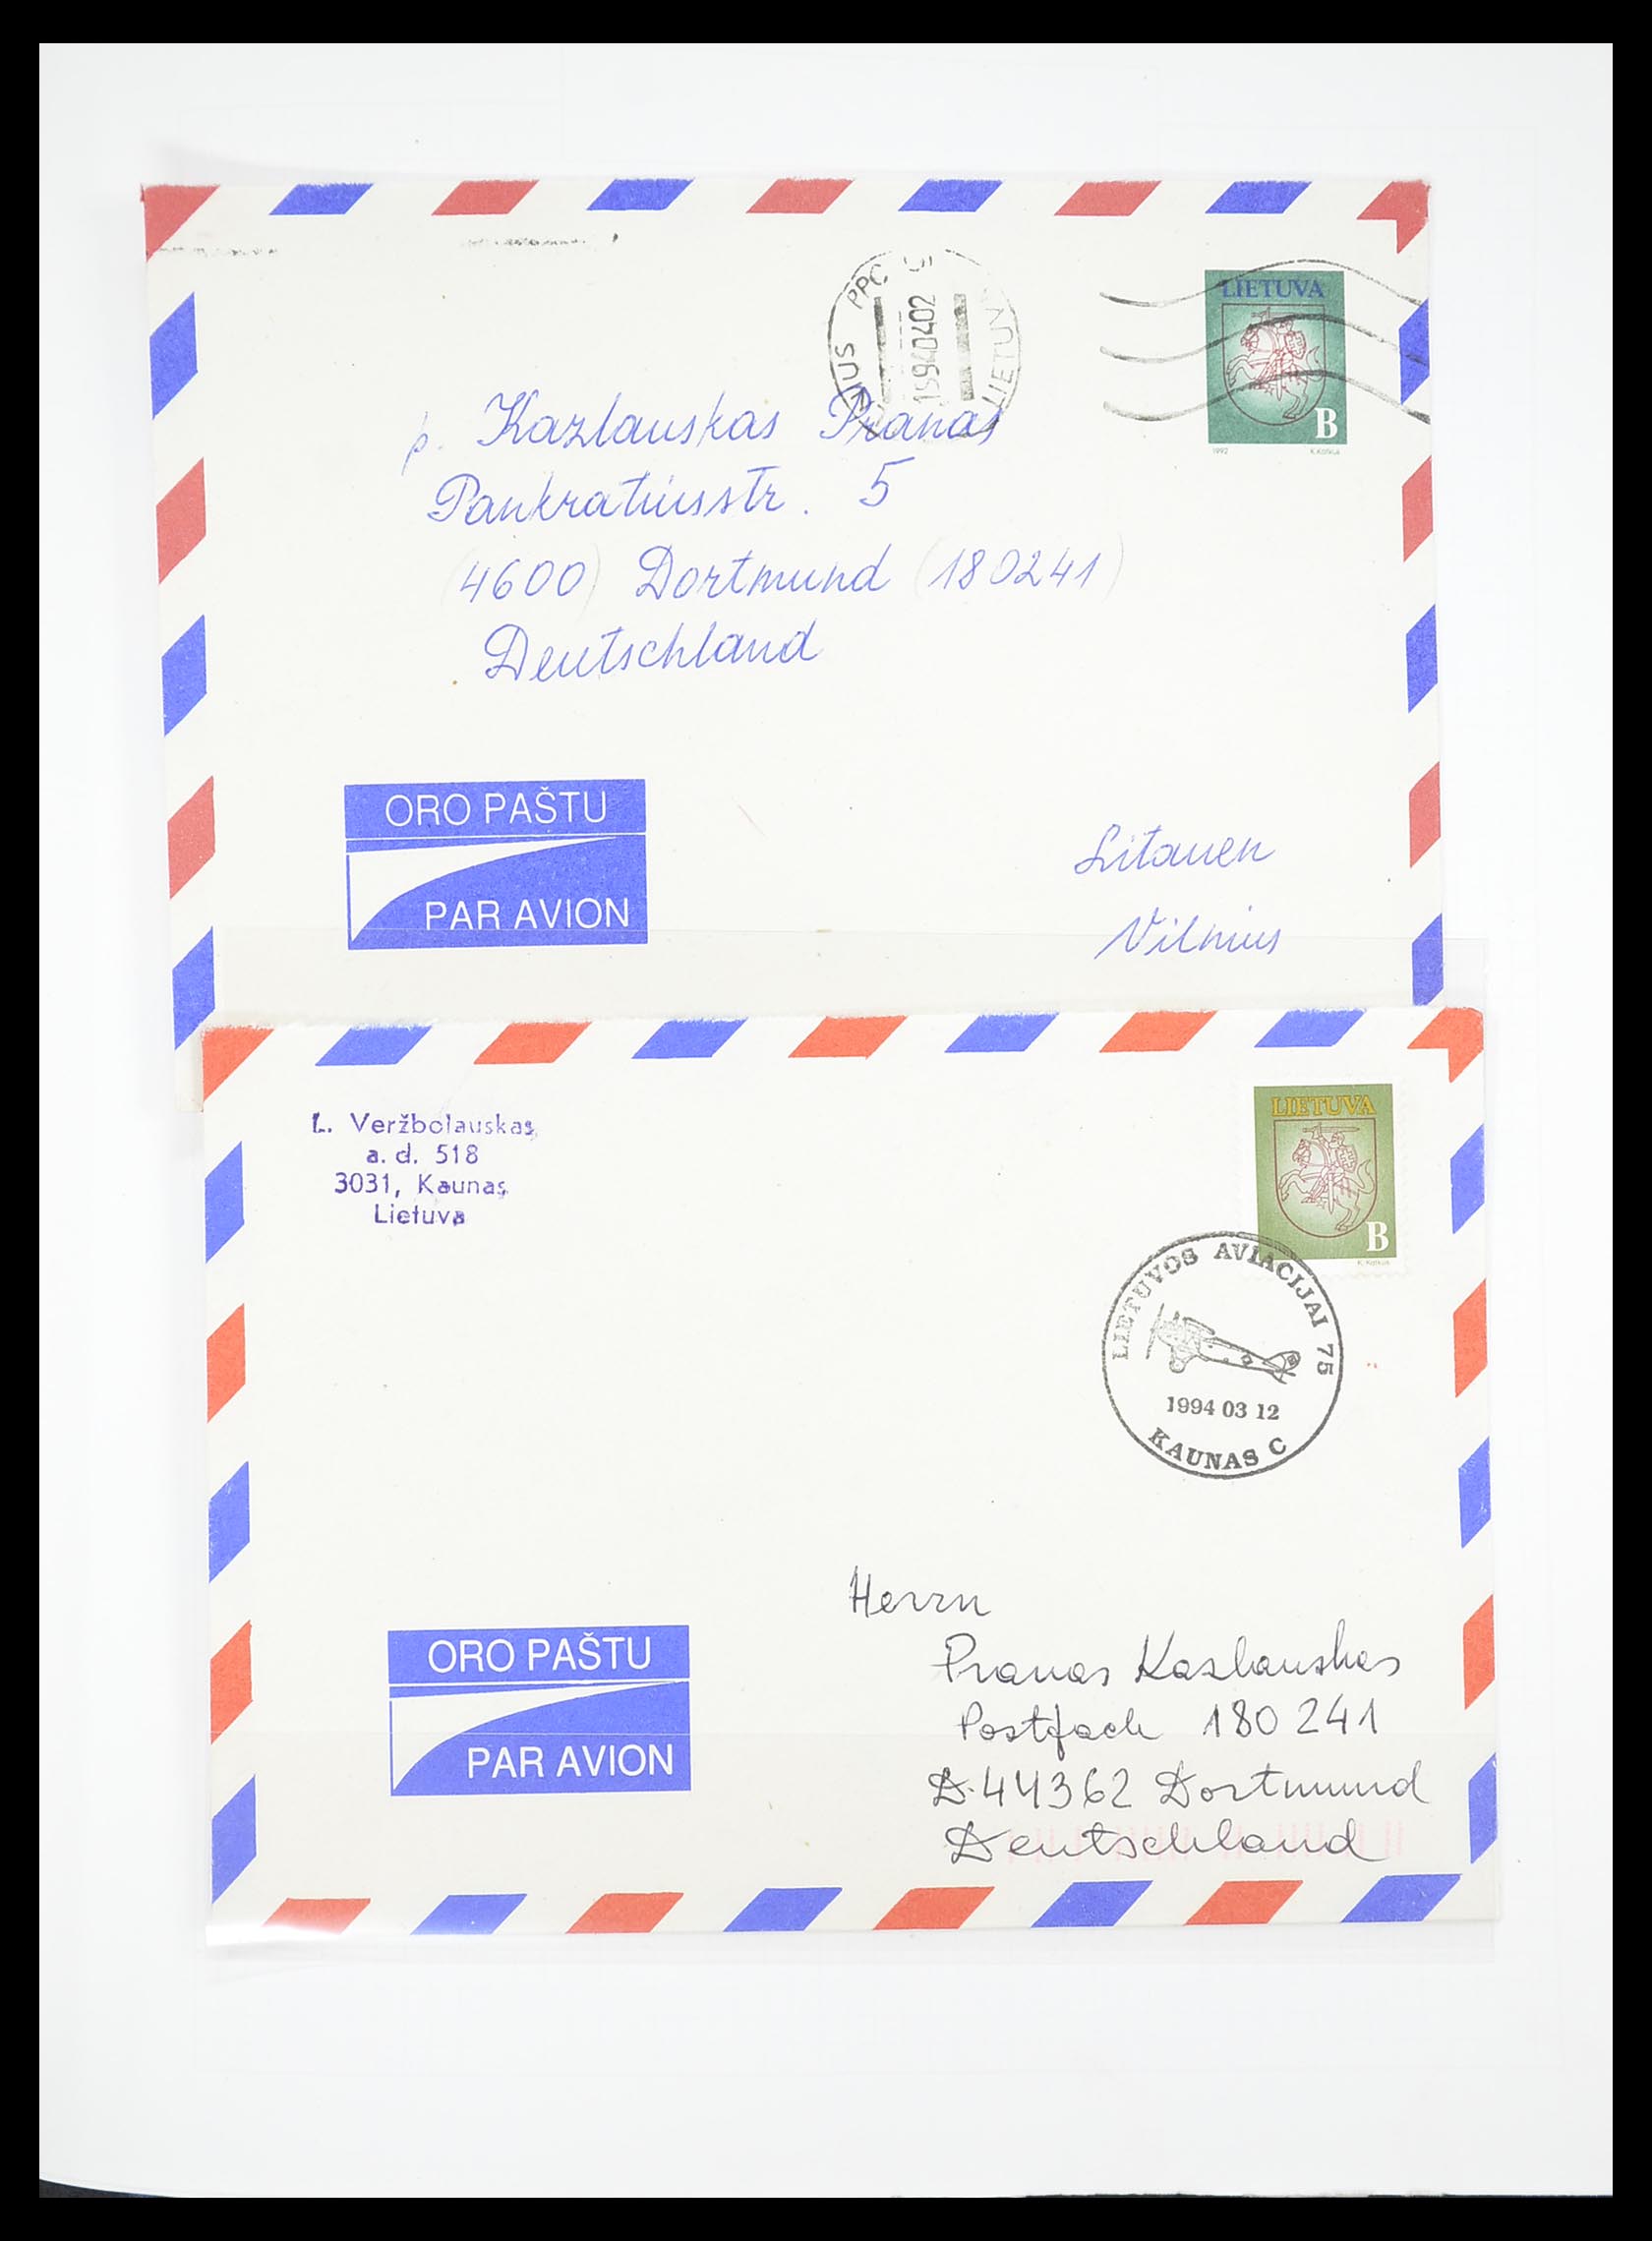 LIETUVA
B
1992 K.Katkus
PPC
19940402
LIETUV
p. Kazlauskas Pranas
Pankratiusstr. 5
(4600) Dortmund (180241)
Deutschland
ORO PAŠTU
PAR AVION
Litauen
Vilnius
L. Veržbolauskas
a. d. 518
3031, Kaunas
Lietuva
LIETUVA
B
LIETUVOS AVIACIJAI 75
1994 03 12
KAUNAS C
Herrn
Pranas Kazlauskas
Postfach 180 241
D-44362 Dortmund
Deutschland
ORO PAŠTU
PAR AVION